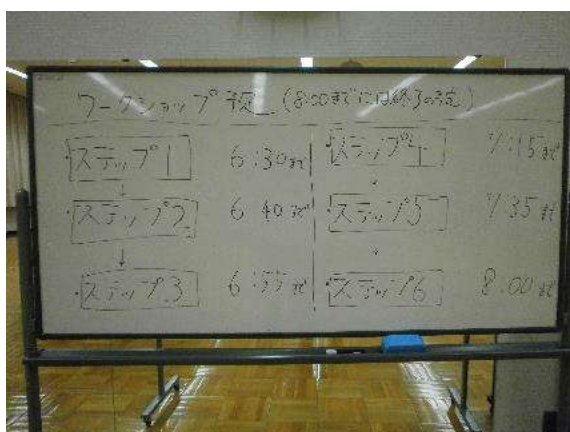 ワークショップ予定 (8:00までには終了の予定)
ステップ1 6:30まで
↓
ステップ2 6:40まで
↓
ステップ3 6:55まで
ステップ4 7:15まで
ステップ5 7:35まで
ステップ6 8:00まで